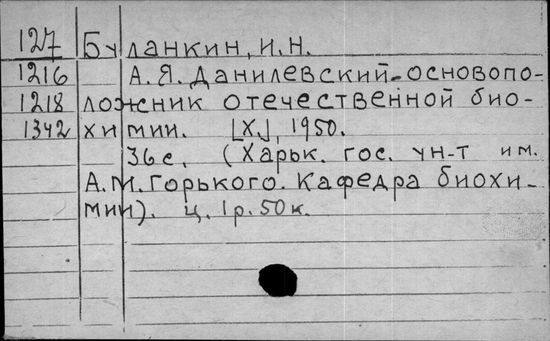 127 Буланкин, И.Н.
1216 А.Я. Данилевский-основопо-
1218 ложник отечественной био-
1342 химии. [Х.], 1950.
36с. (Харьк. гос. ун-т им.
А.М. Горького. Кафедра биохи-
мии). ц. 1р. 50к.